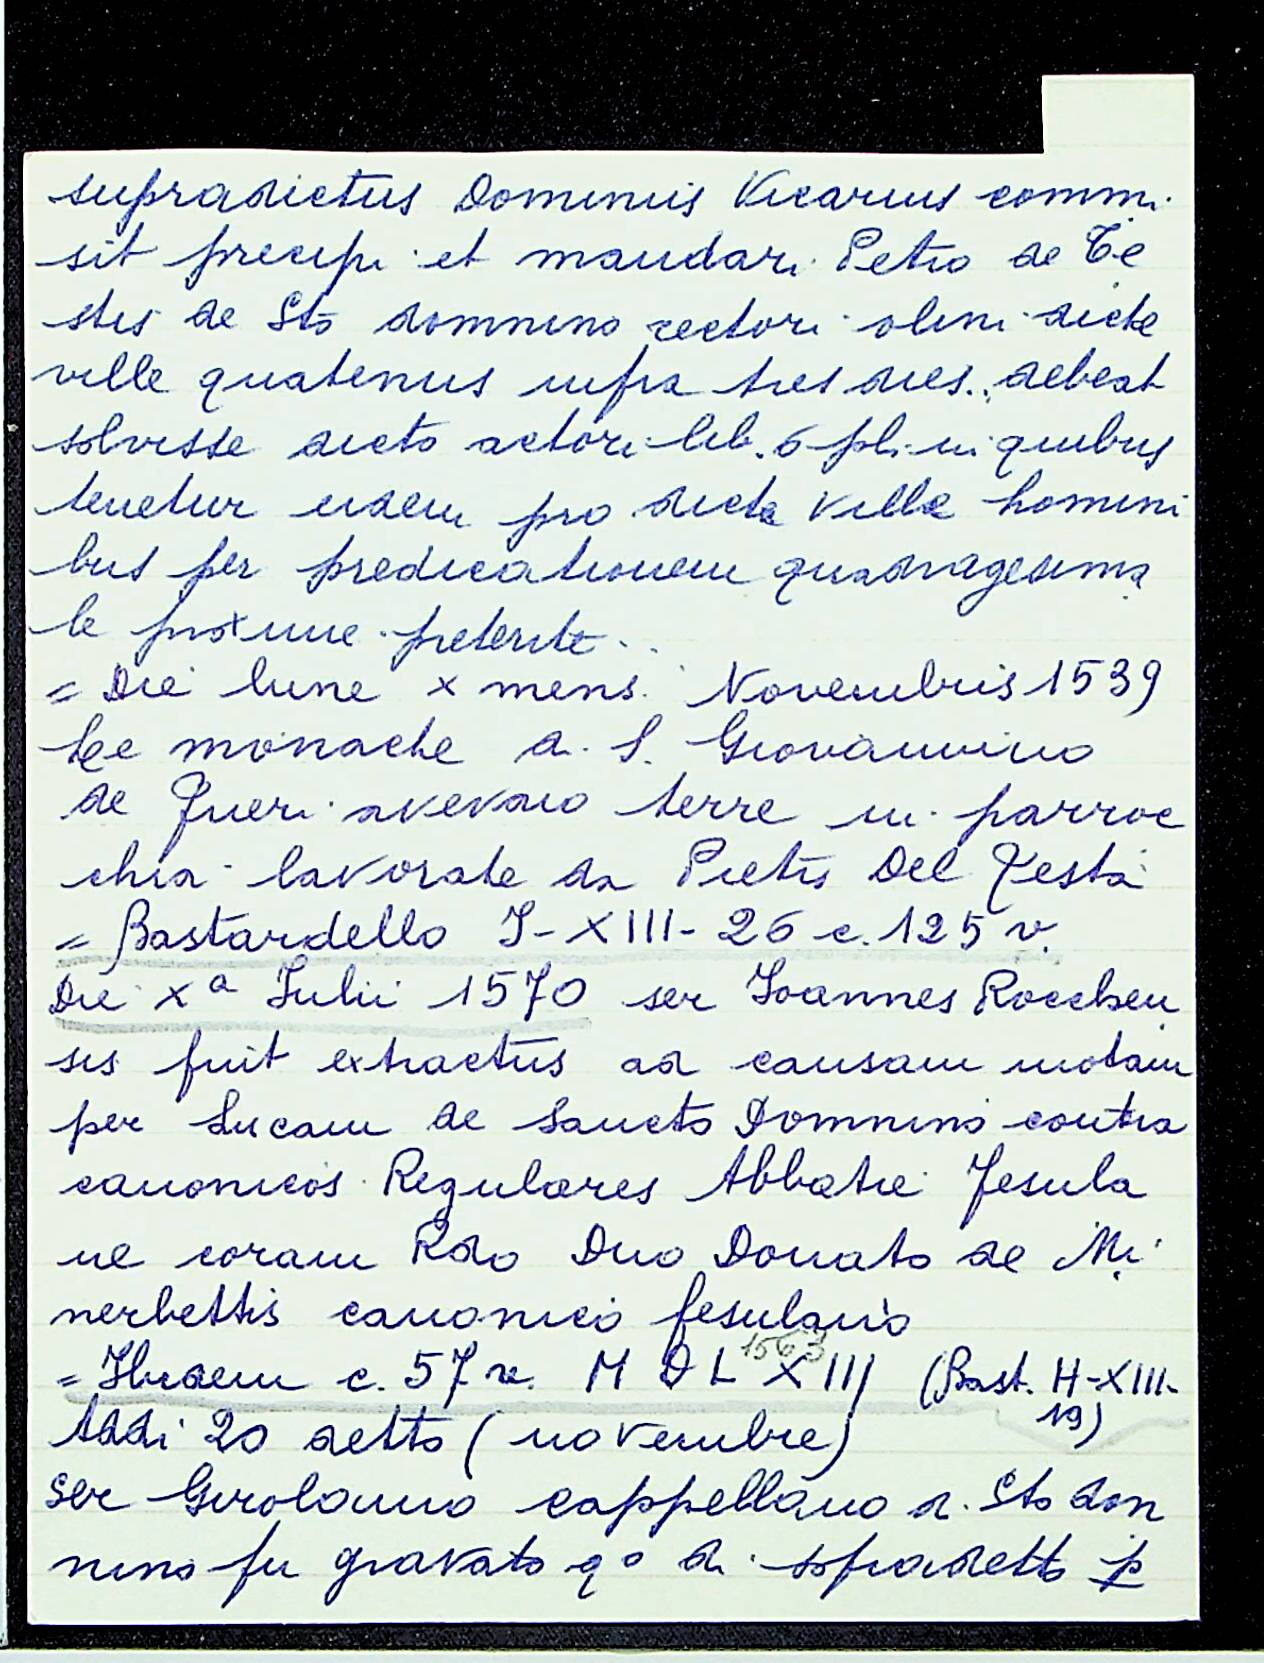 supradictus Dominus Vicarius commi
sit precipi et mandari Petro de Te
stis de Sto domnino rectori olim dicte
ville quatenus infra tres dies.. debeat
solvisse dicto actori lib. 6 pl. in quibus
tenetur eidem pro dicte ville homini
bus per predicationem quadragesima
le proxime preterite..
= Die lune x mens. Novembris 1539
Le monache di S. Giovannino
de Jueri avevano terre in parroc
chia lavorate da Pietro Del Testa
= Bastardello I-XIII-26 c. 125 v.
Die Xª Julii 1570 ser Joannes Rocchen
sis fuit extractus ad causam motam
per Lucam de Sancto Domnino contra
canonicos Regulares Abbatie Fesula
ne coram Rdo Dno Donato de Mi
nerbettis canonico fesulano
= Ibidem c. 57 r. M D L XIII 1563 (Bast. H-XIII-
19)
Addi 20 detto (novembre)
ser Girolamo cappellano di Sto don
nino fu gravato q° di sopradetto p